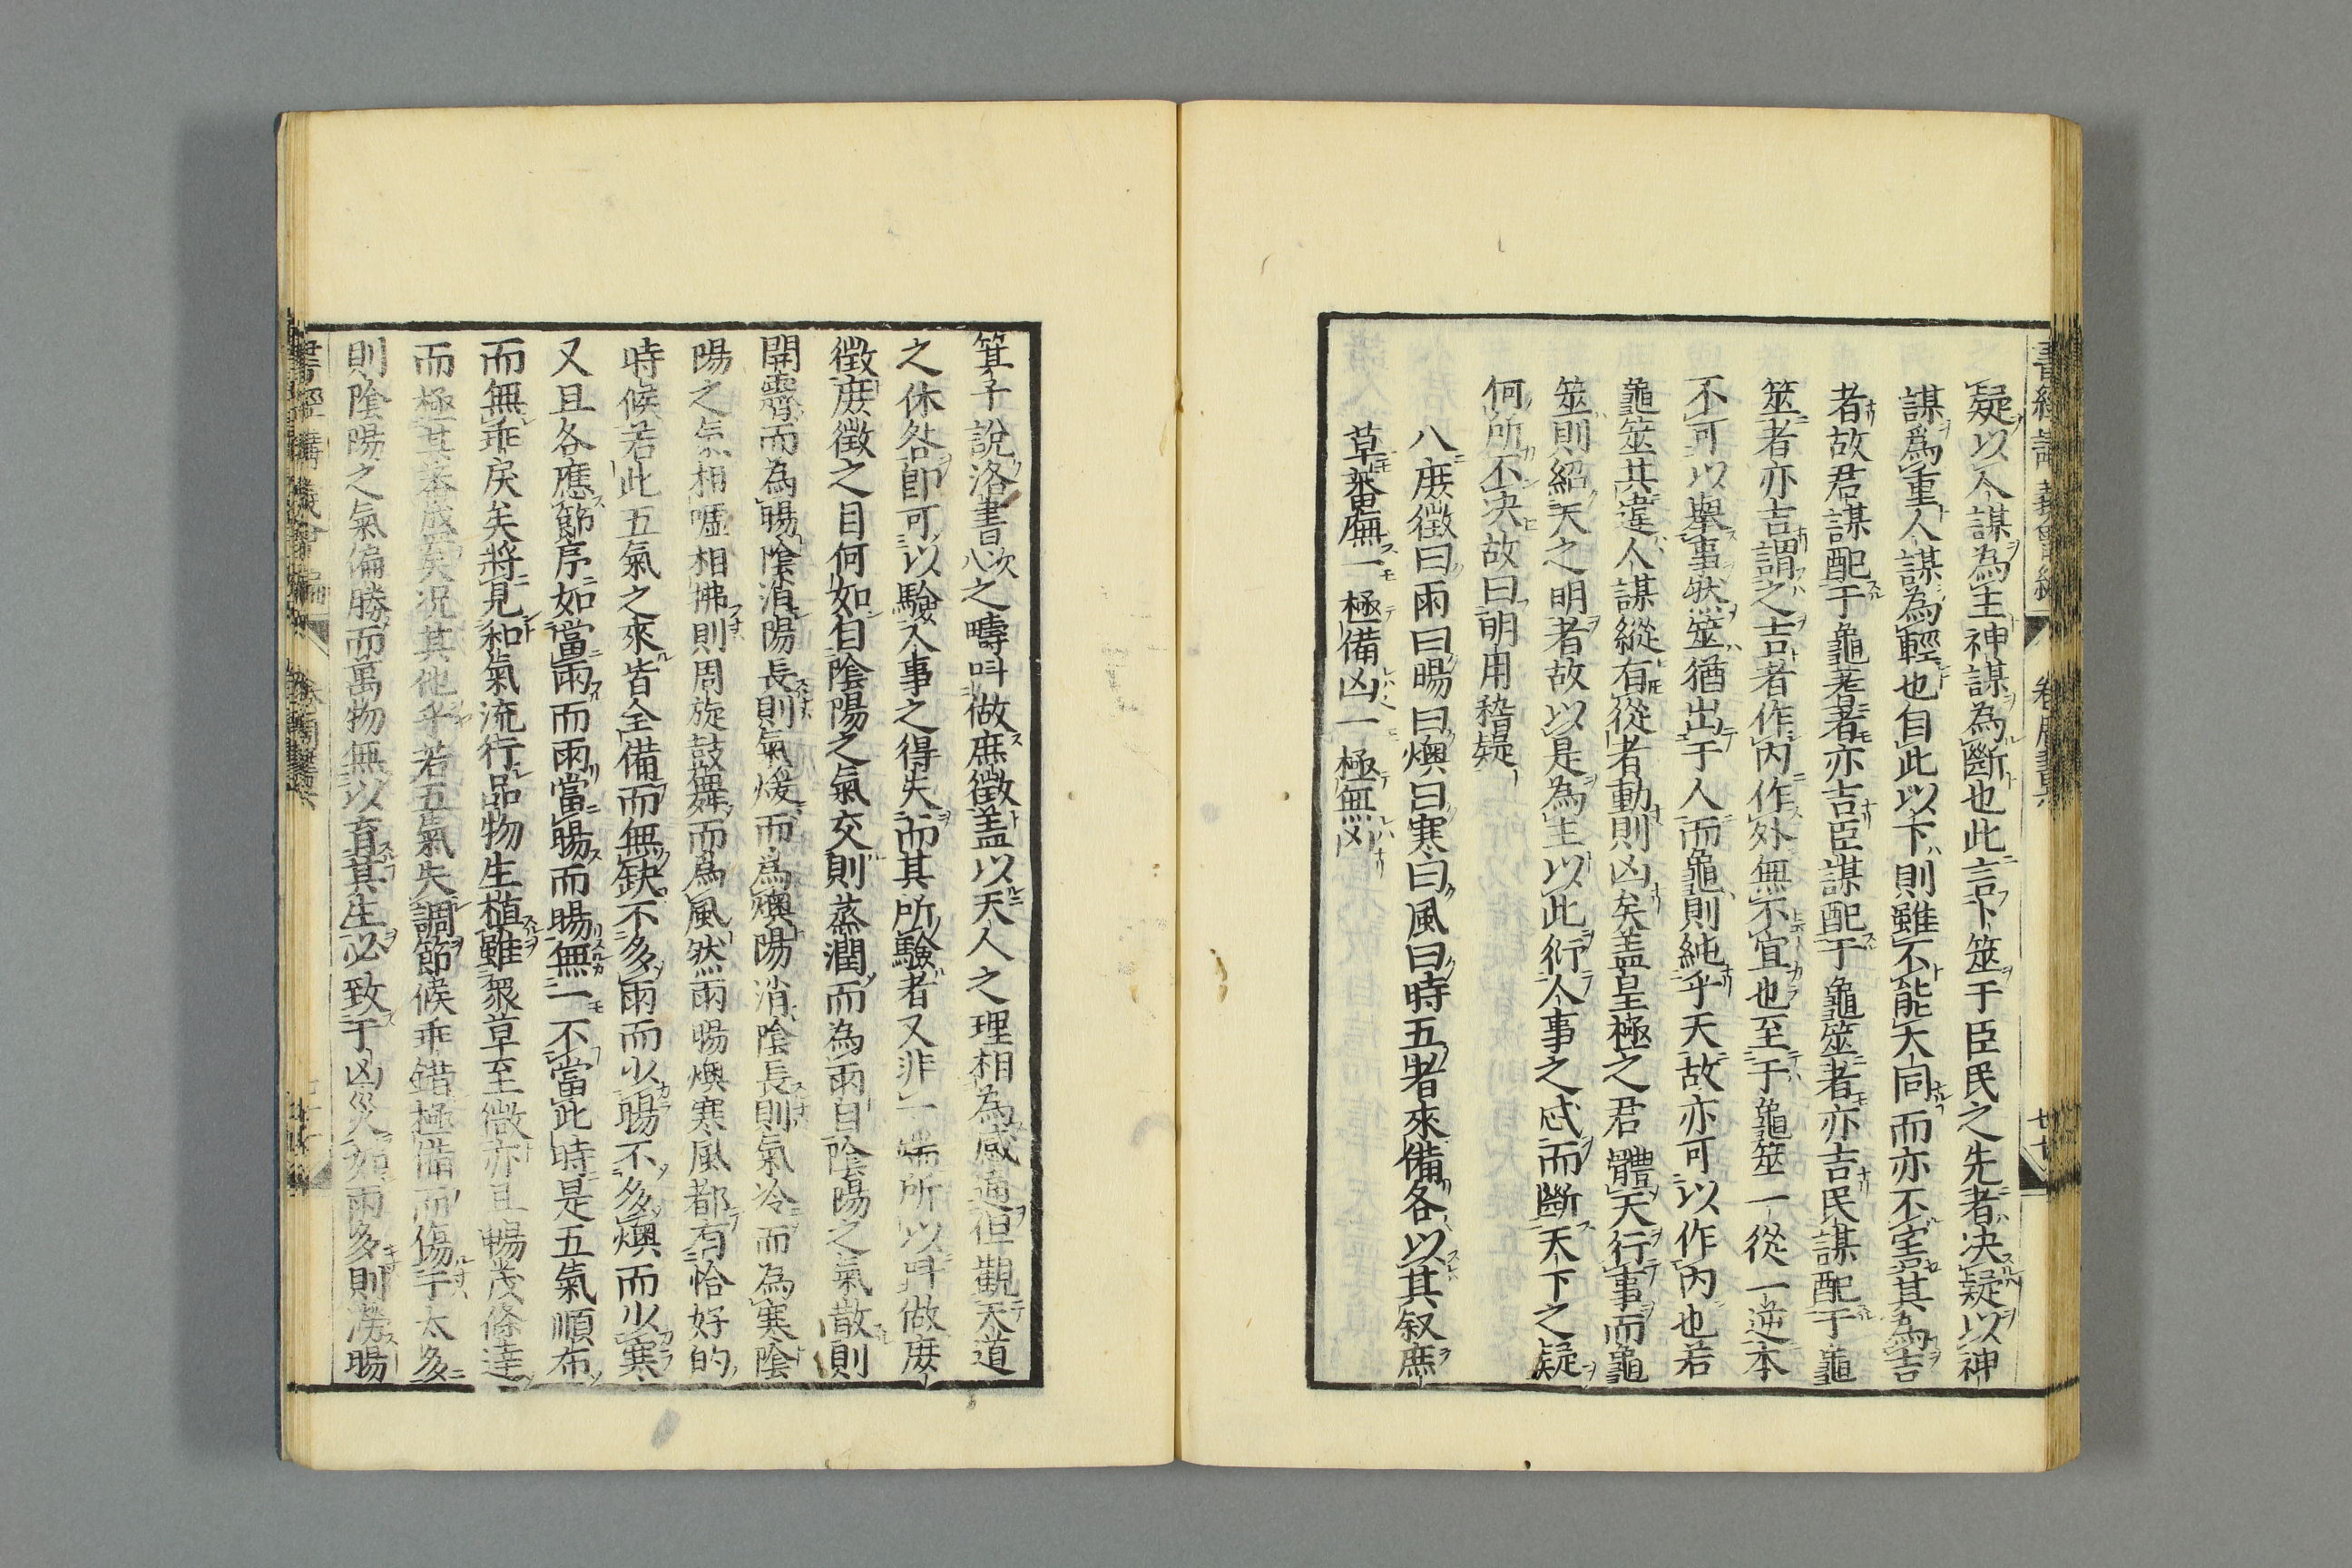 疑以人謀為主神謀為斷也此言卜筮于臣民之先者决疑以神
謀爲重人謀為輕也自此以下則雖不能大同而亦不害其爲吉
者故君謀配于龜著者亦吉臣謀配于龜筮者亦吉民謀配于龜
筮者亦吉謂之吉者作内作外無不宜也至于龜筮一從一逆本
不可以舉事然筮猶出于人而龜則純乎天故亦可以作内也若
龜筮其違人謀縱有從者動則凶矣盖皇極之君體天行事而龜
筮則紹天之明者故以是為主以此衍人事之忒而斷天下之疑
何所不决故曰明用稽疑
八庶徵曰雨曰暘曰燠曰寒曰風曰時五者來備各以其叙庶
草蕃廡一極備凶一極無凶
箕子說洛書次八之疇呌做庶徵盖以天人之理相為感通但觀天道
之休咎即可以驗人事之得失而其所驗者又非一端所以呌做庶
徵庶徵之目何如自陰陽之氣交則蒸潤而為雨自陰陽之氣散則
開霽而為暘陰消陽長則氣煖而爲燠陽消陰長則氣冷而為寒陰
陽之氣相噓相拂則周旋鼓舞而爲風然雨暘燠寒風都有恰好的
時候若此五氣之來皆全備而無缺不多雨而少暘不多燠而少寒
又且各應節序如當雨而雨當暘而暘無一不當此時是五氣順布
而無乖戾矣將見和氣流行品物生植雖衆草至微亦且暢茂條達
而極其蕃盛矣况其他乎若五氣失調節候乖錯極備而傷于太多
則陰陽之氣偏勝而萬物無以育其生必致于凶災如雨多則澇暘
書經講義會編
卷
周書